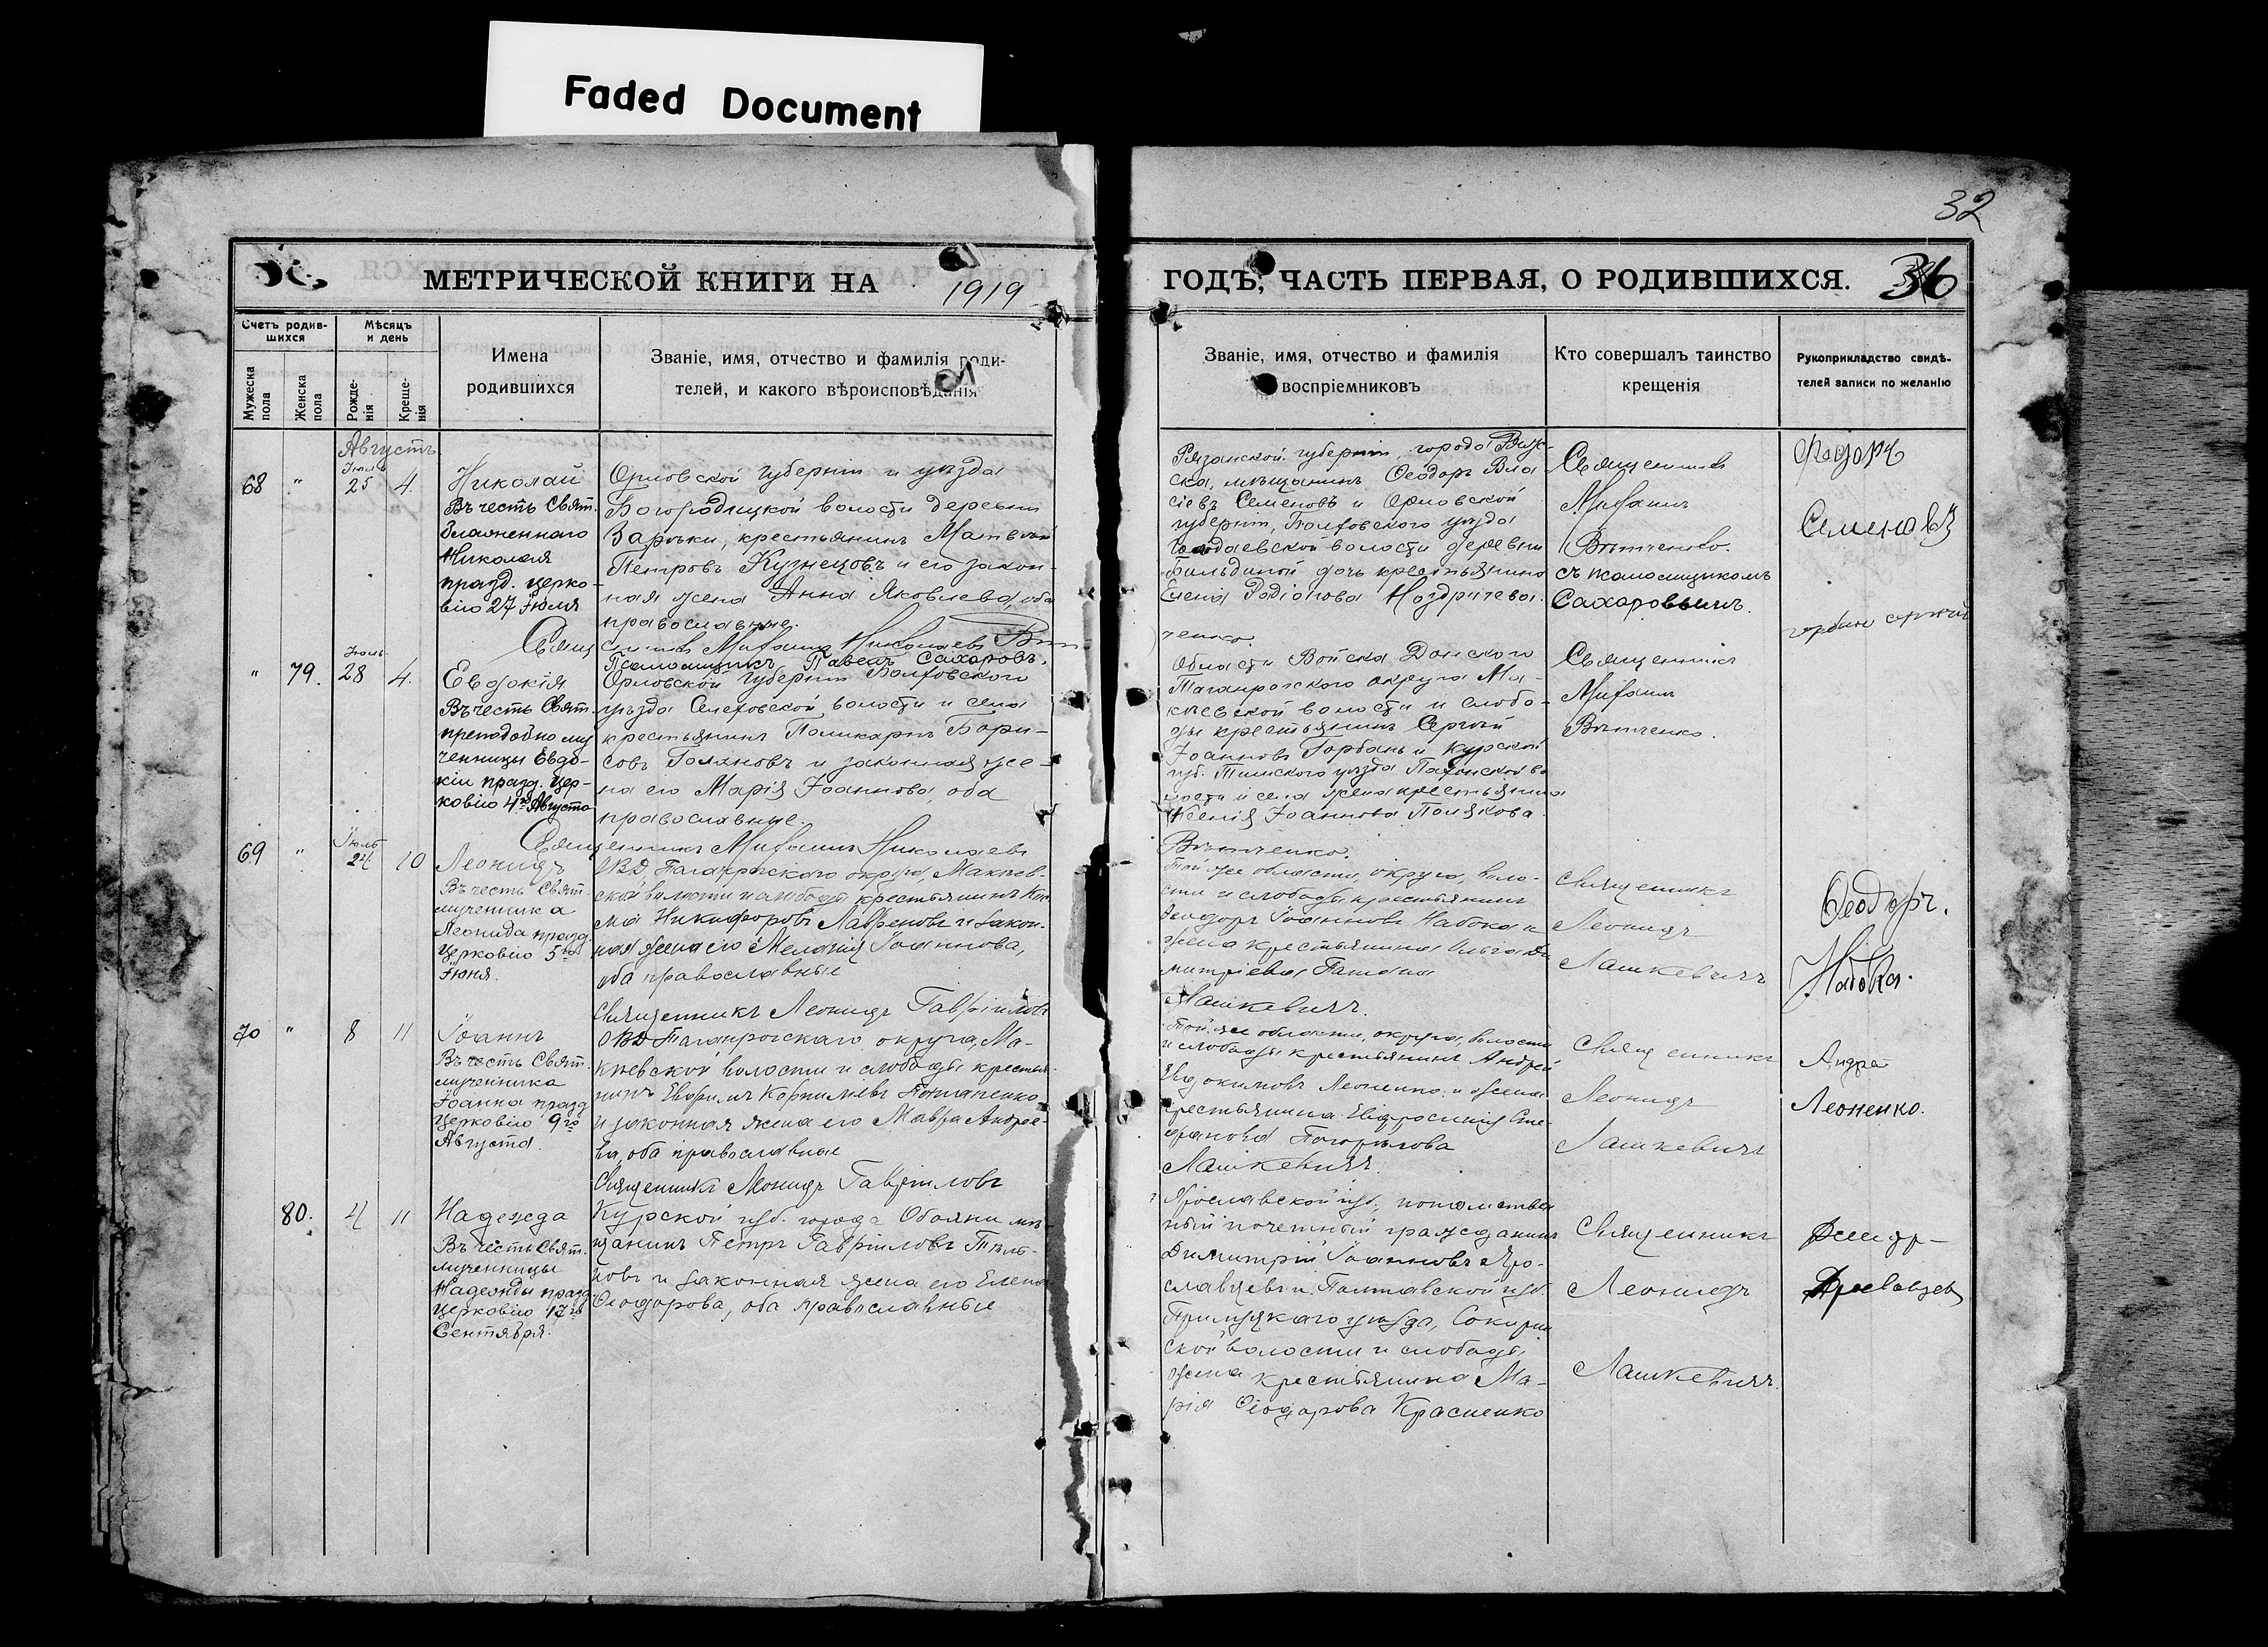 Faded Document
32
МЕТРИЧЕСКОЙ КНИГИ НА 1919
ГОДЪ, ЧАСТЬ ПЕРВАЯ, О РОДИВШИХСЯ. 36
Счетъ родив-
шихся
Мужеска пола
Женска пола
Мѣсяцъ
и день
Рожде-
нія
Креще-
нія
Имена
родившихся
Званіе, имя, отчество и фамилія роди-
телей, и какого вѣроисповѣданія
Званіе, имя, отчество и фамилія
воспріемниковъ
Кто совершалъ таинство
крещенія
Рукоприкладство свидѣ-
телей записи по желанію
Августъ
68 " Іюль 25 4.
Николай
Въ честь Свят.
блаженнаго
Николая
празд. церко-
вію 27 Іюля
Орловской губерніи и уѣзда
Богородицкой волости деревни
крестьянинъ Матвѣй
Петровъ Кузнецовъ и его закон-
ная жена Анна Яковлева, оба
православные.
Рязанской губерніи, города Ряж-
ска, мѣщанинъ Ѳеодоръ Вла
сіевъ Семеновъ и Орловской
губерніи, Болховского уѣзда
волости деревни
дочь крестьянина
Елена Родіонова Ноздричева.
Священникъ
Митрофанъ
Вѣтченко.
съ псаломщикомъ
Сахаровымъ.
Семеновъ
Священникъ Николаевъ Вѣт
ченко
Псаломщикъ Павелъ Сахаровъ.
" 79. Іюль 28 4.
Евдокія
Въ честь Свят.
преподобному
ченицы Евдо-
кіи празд. цер-
ковію 4го Августа
Орловской губерніи Болховского
уѣзда волости и села
крестьянинъ Поликарпъ Бори-
совъ и законная же-
на его Марія Іоаннова, оба
православные.
Области Войска Донского
Таганрогского округа Ма-
кѣевской волости и слобо-
ды крестьянинъ Сергѣй
Іоанновъ Горбань и Курской
губ. Тимского уѣзда
волости и села жена крестьянина
Ксенія Іоаннова Полякова
Священникъ
Вѣтченко.
Священникъ Николаевъ
Вѣтченко.
69 " Іюль 24 10
Леонидъ
Въ честь Свят.
мученика
Леонида празд
церковію 5го
Іюня.
ОВД, Таганрогскаго округа, Макѣев-
ской волости и слободы крестьянинъ Кузь
ма Никифоровъ Лавреновъ и закон-
ная жена его Меланія Іоаннова,
оба православные
Той же области, округа, воло-
сти и слободы крестьянинъ
Ѳеодоръ Іоанновъ Набока и
жена крестьянина Ольга Ди
митріева
Священникъ
Леонидъ
Лашкевичъ
Ѳеодоръ.
Набока.
Священникъ Леонидъ Гавріиловъ
Лашкевичъ.
70 " 8 11
Іоаннъ
Въ честь Свят.
мученика
Іоанна празд
церковію 9го
Августа.
ОВД Таганрогскаго округа, Ма-
кѣевской волости и слободы крестья-
нинъ Ефимъ Корниліевъ
и законная жена его Мавра Андрее-
ва, оба православные
Той же области, округа, волости
и слободы крестьянинъ Андрей
Евдокимовъ Леоненко и жена
крестьянина Евфросинія Сте-
фанова
Священникъ
Леонидъ
Лашкевичъ
Андре
Леоненко.
Священникъ Леонидъ Гавріиловъ
Лашкевичъ.
80. 4 11
Надежда
Въ честь Свят.
мученицы
Надежды празд
церковію 17го
Сентября.
Курской губ. города Обояни мѣ-
щанинъ Петръ Гавріиловъ
и законная жена его Елена
Ѳеодорова, оба православные
Ярославской губ., потомствен
ный почетный гражданинъ
Димитрій Іоанновъ Яро-
славцевъ и Полтавской губ.
Прилуцкаго уѣзда, Сокирин
ской волости и слободы
жена крестьянина Ма-
рія Ѳеодорова Красненко
Священникъ
Леонидъ
Лашкевичъ.